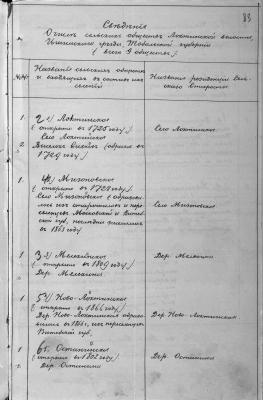 83
Сведения
О числе сельских обществ Локтинской волости,
Ишимского уезда, Тобольской губернии
(всего 9 обществ).
№№
Название сельских обществ
и входящих в состав их
селений
Название резиденции сель-
ского старосты
1
2 е) Локтинское
(открыто в 1725 году)
Село Локтинское
Село Локтинское
2
1729 году)
1
4е) Мизоновское
(открыто в 1728 году)
Село Мизоновское (образова-
лось из старожилов и пере-
селенцев Московской и Витеб-
ской губ,
в 1863 году
Село Мизоновское
1
3 е) Мелехинское
(открыто в 1809 году)
Дер. Мелехина
Дер. Мелехина
1
5е) Ново-Локтинское
(открыто в 1866 году)
Дер. Ново-Локтинская образо-
валась в 1866г, из переселенцев
Витебской губ.
Дер. Ново-Локтинская
1
6е. Останинское
(открыто в 1802 году)
Дер. Останина
Дер. Останина